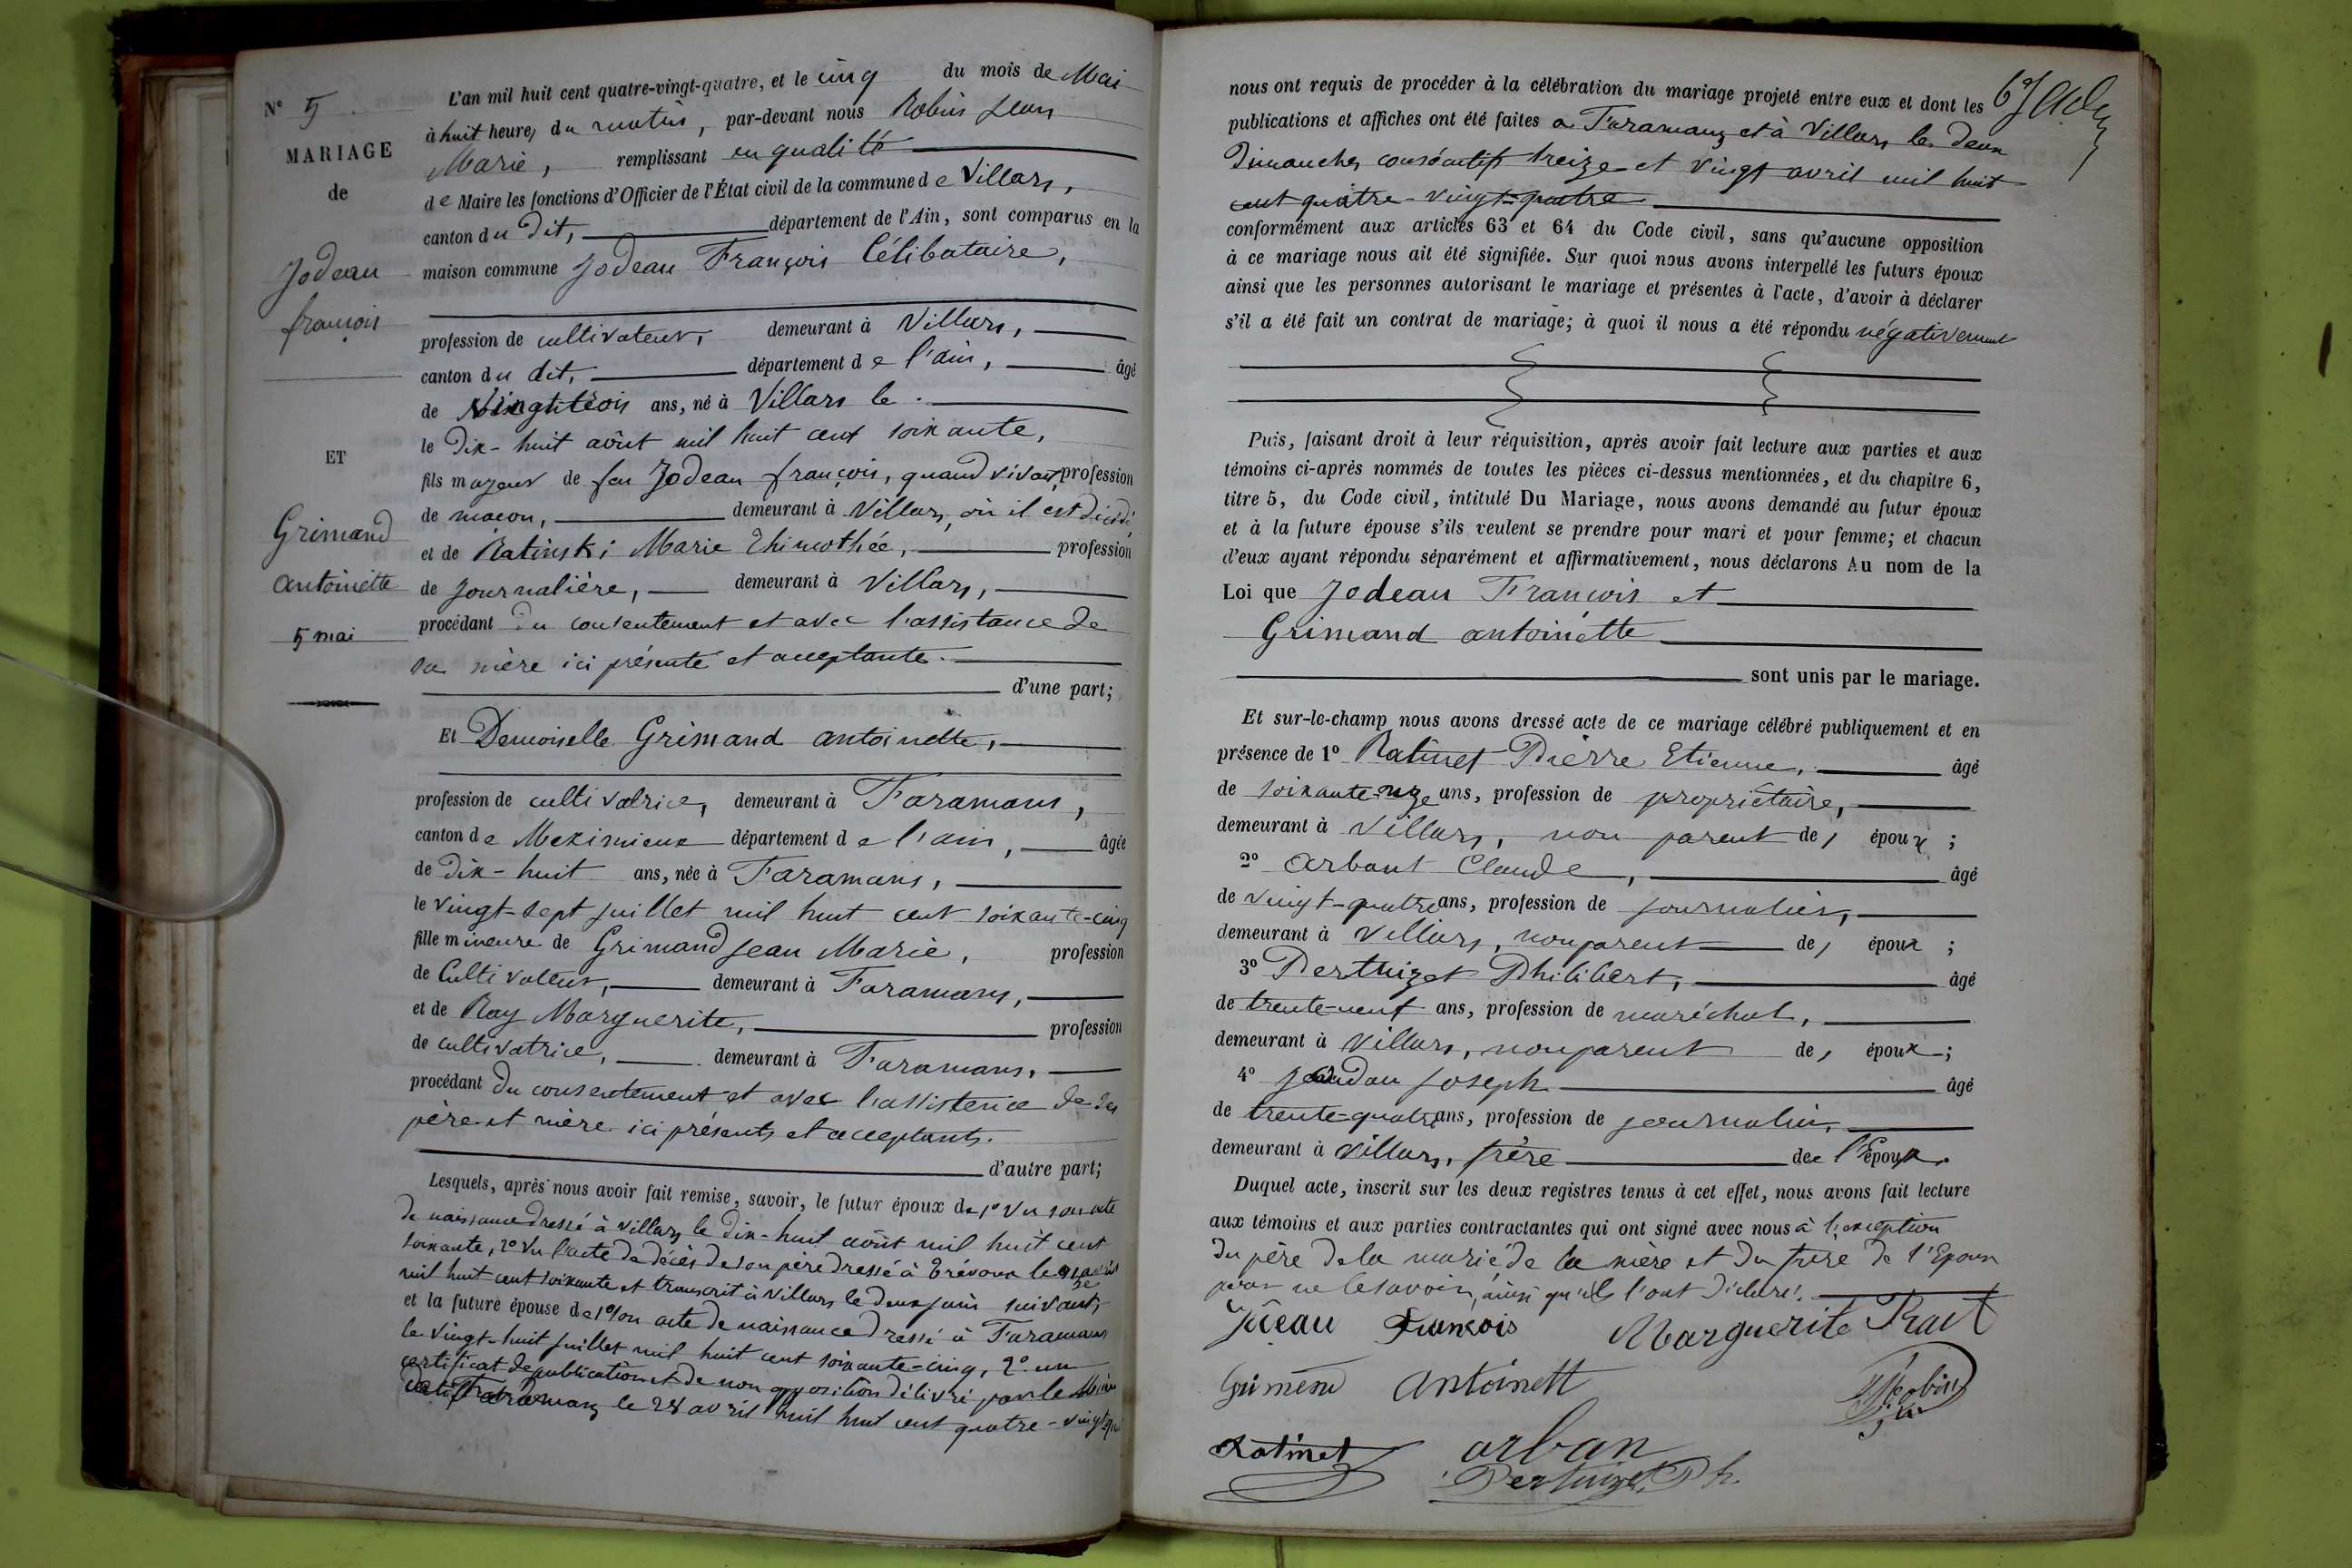 N° 5
MARIAGE
de
Jodeau
françois
ET
Grimand
antoinette
5 mai
L'an mil huit cent quatre-vingt-quatre, et le cinq du mois de Mai
à huit heures du matin, par-devant nous Robin Jean
Marie, remplissant en qualité
de Maire les fonctions d'Officier de l'État civil de la commune de Villars,
canton du dit, département de l'Ain, sont comparus en la
maison commune Jodeau François Célibataire,
profession de cultivateur, demeurant à Villars,
canton du dit, département de l'ain, âgé
de Vingttrois ans, né à Villars le
le Dix-huit août mil huit cent soixante,
fils majeur de feu Jodeau françois, quand vivant, profession
de macon, demeurant à Villars, où il est décédé
et de Ratinski Marie Thimothée, profession
de journalière, demeurant à Villars,
procédant du consentement et avec l'assistance de
sa mère ici présente et acceptante.
d'une part;
Et Demoiselle Grimand antoinette,
profession de cultivatrice, demeurant à Faramans,
canton de Meximieux département de l'ain, âgée
de Dix-huit ans, née à Faramans,
le Vingt-sept juillet mil huit cent soixante-cinq
fille mineure de Grimand Jean Marie, profession
de Cultivateur, demeurant à Faramans,
et de Ray Marguerite, profession
de cultivatrice, demeurant à Faramans,
procédant du consentement et avec l'assistence de ses
père et mère ici présents et acceptants.
d'autre part;
Lesquels, après nous avoir fait remise, savoir, le futur époux de 1° Vu son acte
de naissance dressé à Villars le dix-huit août mil huit cent
soixante, 2° Vu l'acte de décès de son père dressé à Trévoux le
mil huit cent soixante et transcrit à Villars le deux juin suivant,
et la future épouse de 1° son acte de naissance dressé à Faramans
le Vingt-huit juillet mil huit cent soixante-cinq, 2° un
certificat de publication et de non opposition délivré par le Maire
de Faramans le 28 avril mil huit cent quatre-vingt
nous ont requis de procéder à la célébration du mariage projeté entre eux et dont les
publications et affiches ont été faites a Faramans et à Villars les deux
Dimanches consécutifs treize et Vingt avril mil huit
cent quatre-vingt-quatre
conformément aux articles 63 et 64 du Code civil, sans qu'aucune opposition
à ce mariage nous ait été signifiée. Sur quoi nous avons interpellé les futurs époux
ainsi que les personnes autorisant le mariage et présentes à l'acte, d'avoir à déclarer
s'il a été fait un contrat de mariage; à quoi il nous a été répondu négativement
Puis, faisant droit à leur réquisition, après avoir fait lecture aux parties et aux
témoins ci-après nommés de toutes les pièces ci-dessus mentionnées, et du chapitre 6,
titre 5, du Code civil, intitulé Du Mariage, nous avons demandé au futur époux
et à la future épouse s'ils veulent se prendre pour mari et pour femme; et chacun
d'eux ayant répondu séparément et affirmativement, nous déclarons Au nom de la
Loi que Jodeau François et
Grimand antoinette
sont unis par le mariage.
Et sur-le-champ nous avons dressé acte de ce mariage célébré publiquement et en
présence de 1° Ratinet Pierre Etienne, âgé
de soixante-onze ans, profession de propriétaire,
demeurant à Villars, non parent des époux;
2° Arbant Claude, âgé
de vingt-quatre ans, profession de journalier,
demeurant à Villars, non parent des époux;
3° Pertuizet Philibert, âgé
de trente-neuf ans, profession de maréchal,
demeurant à Villars, non parent des époux;
4° Joseph âgé
de trente-quatre ans, profession de journalier,
demeurant à Villars, frère de l'Epoux.
Duquel acte, inscrit sur les deux registres tenus à cet effet, nous avons fait lecture
aux témoins et aux parties contractantes qui ont signé avec nous à l'exception
du père de la mariée de la mère et du frere de l'Epoux
pour ne le savoir, ainsi qu'ils l'ont déclaré.
François Marguerite
Antoinett
Robin
Ratinet arban
Pertuizet Ph.